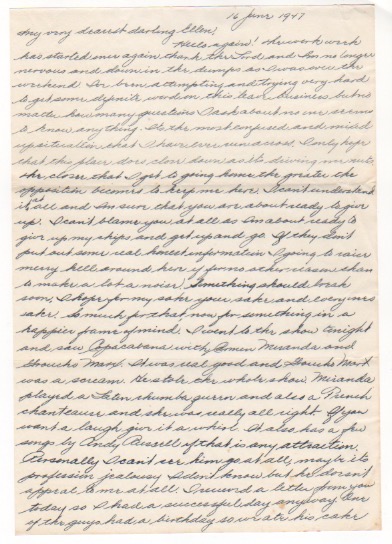 16 June 1947
My very dearest darling Ellen;
Hello again! The work week
has started once again thank the Lord and I'm no longer
nervous and down in the dumps as I was over the
weekend. I've been attempting and trying very hard
to get some definite word on this leave business but no
matter how many questions I ask about no one seems
to know anything. It's the most confused and mixed
up situation that I have ever run across. I only hope
that this place does close down as it's driving me nuts.
The closer that I get to going home the greater the
opposition becomes to keep me here. I can't understand
it at all and I'm sure that you are about ready to give
up. I can't blame you at all as I'm about ready to
give up my chips and get up and go. If they don't
put out some real honest information I going to raise
merry hell around here if for no other reason than
to make a lot a noise! Something should break
soon, I hope for my sake your sake and everyones
sake. So much for that, now for something in a
happier frame of mind. I went to the show tonight
and saw Copacabana with Carmen Miranda and
Groucho Marx. It was real good and Groucho Marx
was a scream. He stole the whole show. Miranda
played a Latin, rhumba queen and also a French
chanteuser and she was really all right. If you
want a laugh give it a whirl. It also has a few
songs by Andy Russell if that is any attraction.
Personally I can't see him go at all, maybe it's
profession jealousy I don't know but he doesn't
appeal to me at all. I received a letter from you
today so I had a successful day anyway. One
of the guys had a birthday so we ate his cake